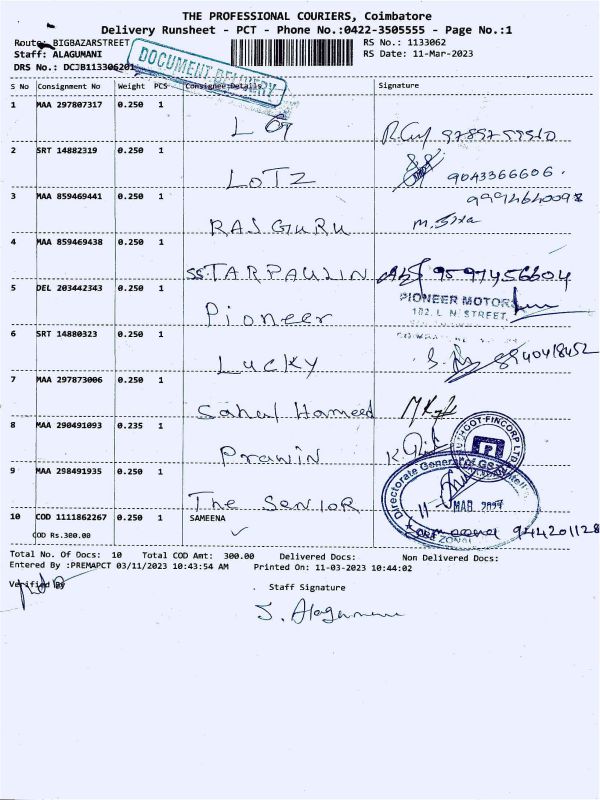 THE PROFESSIONAL COURIERS, Coimbatore
Delivery Runsheet - PCT - Phone No.:0422-3505555 - Page No.:1
Route: BIGBAZARSTREET
RS No.: 1133062
Staff: ALAGUMANI
RS Date: 11-Mar-2023
DRS No.: DCJB113306201
DOCUMENT DELIVERY
S No Consignment No Weight PCS Consignee Details Signature
1 MAA 297807317 0.250 1
L G
2 SRT 14882319 0.250 1
LOTZ 9043366606.
3 MAA 859469441 0.250 1
RAJGURU
4 MAA 859469438 0.250 1
SS.TARPAULIN 9597456604
5 DEL 203442343 0.250 1
PIONEER MOTORS
102, L N STREET,
Pioneer
6 SRT 14880323 0.250 1
Lucky
7 MAA 297873006 0.250 1
Sahul Hameed
8 MAA 290491093 0.235 1
Prawin
9 MAA 298491935 0.250 1
The SENIOR
10 COD 1111862267 0.250 1 SAMEENA
COD Rs.300.00
Total No. Of Docs: 10 Total COD Amt: 300.00 Delivered Docs: Non Delivered Docs:
Entered By :PREMAPCT 03/11/2023 10:43:54 AM Printed On: 11-03-2023 10:44:02
Verified By
Staff Signature